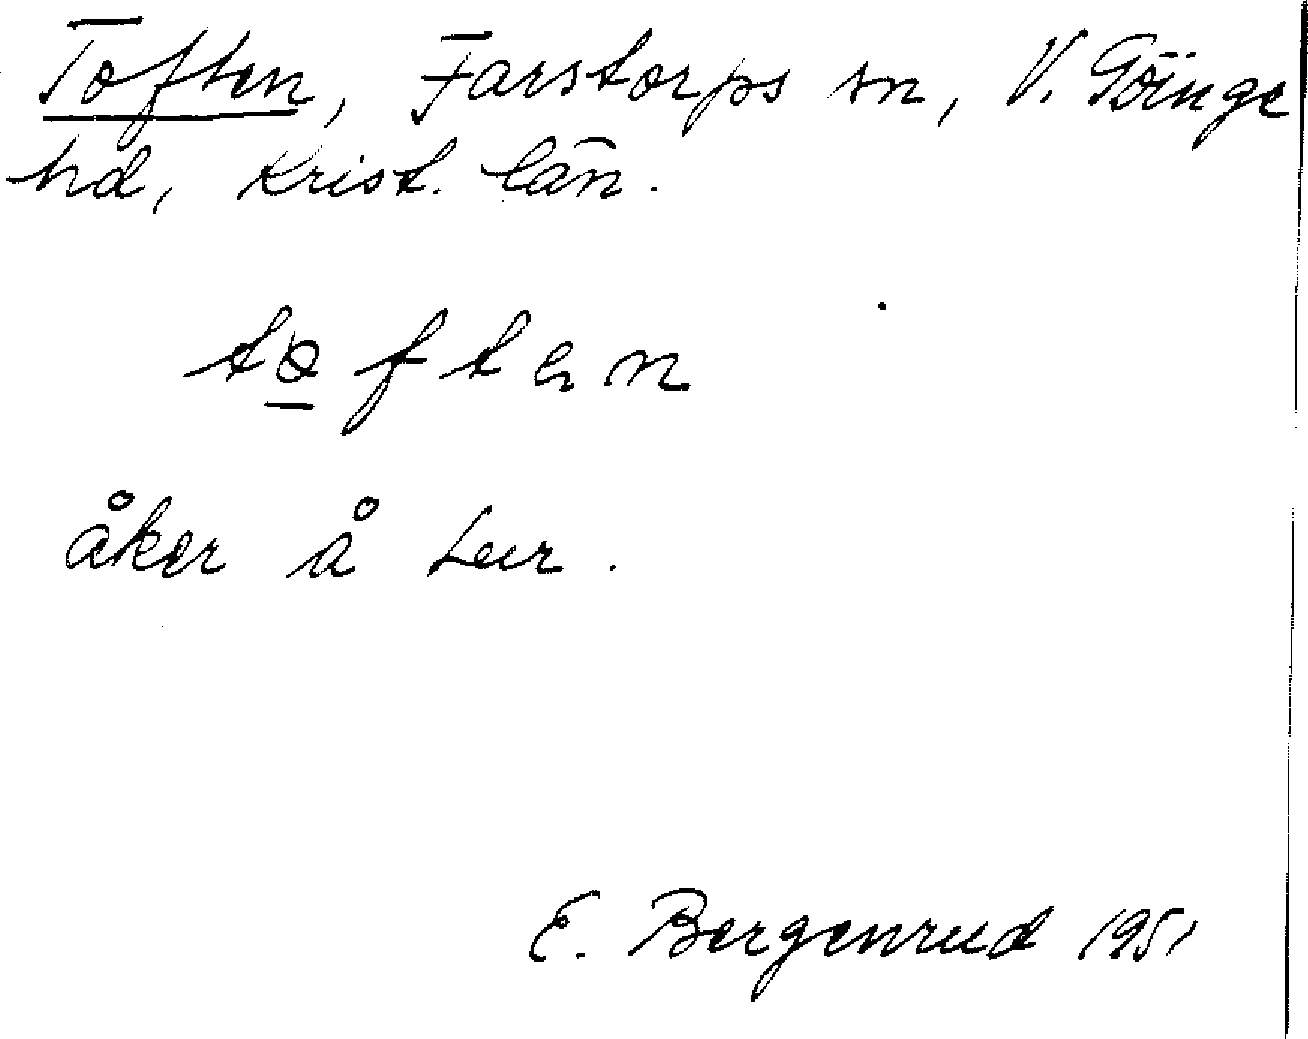 Toften, Farstorps sn, V. Göinge
hd, Krist. län.
åker å Lur.
E. Bergenrud 1951